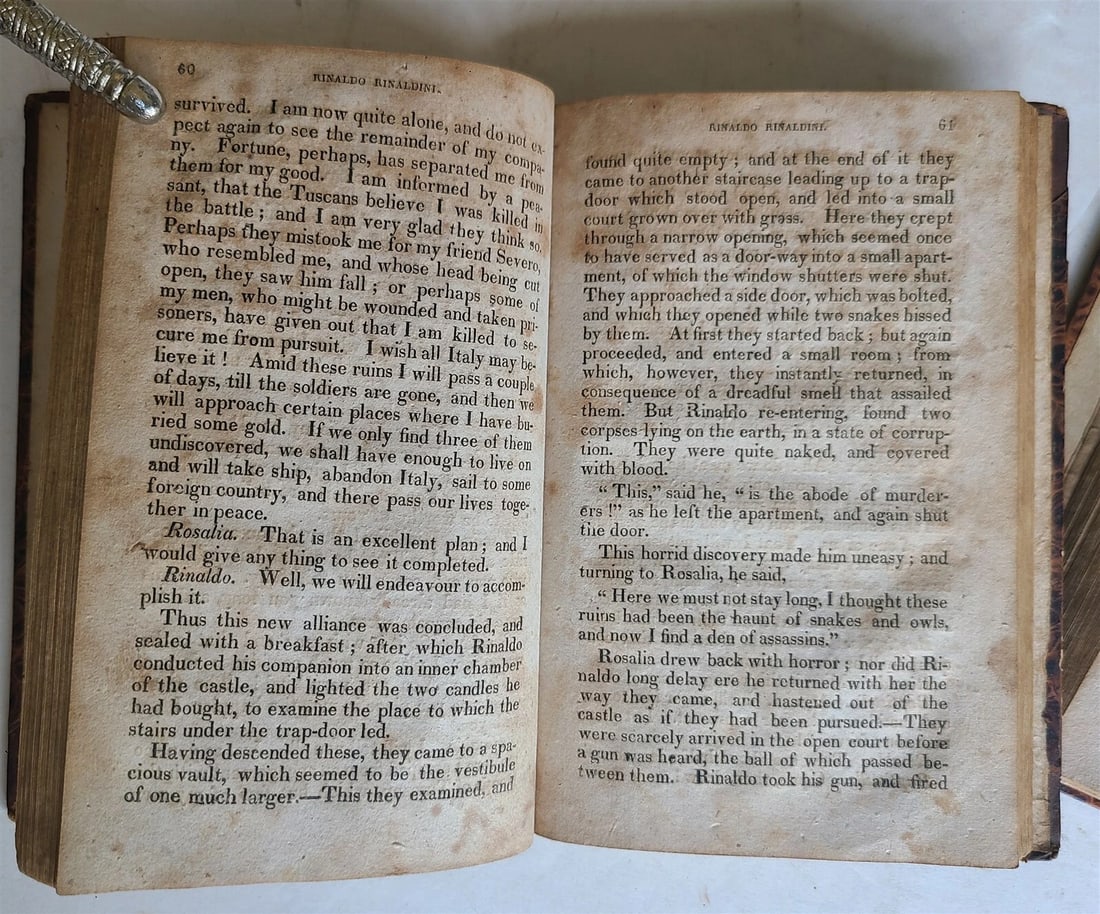 60
RINALDO RINALDINI.
survived. I am now quite alone, and do not ex-
pect again to see the remainder of my compa-
ny. Fortune, perhaps, has separated me from
them for my good. I am informed by a pea-
sant, that the Tuscans believe I was killed in
the battle; and I am very glad they think so.
Perhaps they mistook me for my friend Severo,
who resembled me, and whose head being cut
open, they saw him fall; or perhaps some of
my men, who might be wounded and taken pri-
soners, have given out that I am killed to se-
cure me from pursuit. I wish all Italy may be-
lieve it! Amid these ruins I will pass a couple
of days, till the soldiers are gone, and then we
will approach certain places where I have bu-
ried some gold. If we only find three of them
undiscovered, we shall have enough to live on
and will take ship, abandon Italy, sail to some
foreign country, and there pass our lives toge-
ther in peace.
Rosalia. That is an excellent plan; and I
would give any thing to see it completed.
Rinaldo. Well, we will endeavour to accom-
plish it.
Thus this new alliance was concluded, and
sealed with a breakfast; after which Rinaldo
conducted his companion into an inner chamber
of the castle, and lighted the two candles he
had bought, to examine the place to which the
stairs under the trap-door led.
Having descended these, they came to a spa-
cious vault, which seemed to be the vestibule
of one much larger.—This they examined, and
RINALDO RINALDINI.
61
found quite empty; and at the end of it they
came to another staircase leading up to a trap-
door which stood open, and led into a small
court grown over with grass. Here they crept
through a narrow opening, which seemed once
to have served as a door-way into a small apart-
ment, of which the window shutters were shut.
They approached a side door, which was bolted,
and which they opened while two snakes hissed
by them. At first they started back; but again
proceeded, and entered a small room; from
which, however, they instantly returned, in
consequence of a dreadful smell that assailed
them. But Rinaldo re-entering, found two
corpses lying on the earth, in a state of corrup-
tion. They were quite naked, and covered
with blood.
"This," said he, "is the abode of murder-
ers!" as he left the apartment, and again shut
the door.
This horrid discovery made him uneasy; and
turning to Rosalia, he said,
"Here we must not stay long, I thought these
ruins had been the haunt of snakes and owls,
and now I find a den of assassins."
Rosalia drew back with horror; nor did Ri-
naldo long delay ere he returned with her the
way they came, and hastened out of the
castle as if they had been pursued.—They
were scarcely arrived in the open court before
a gun was heard, the ball of which passed be-
tween them. Rinaldo took his gun, and fired